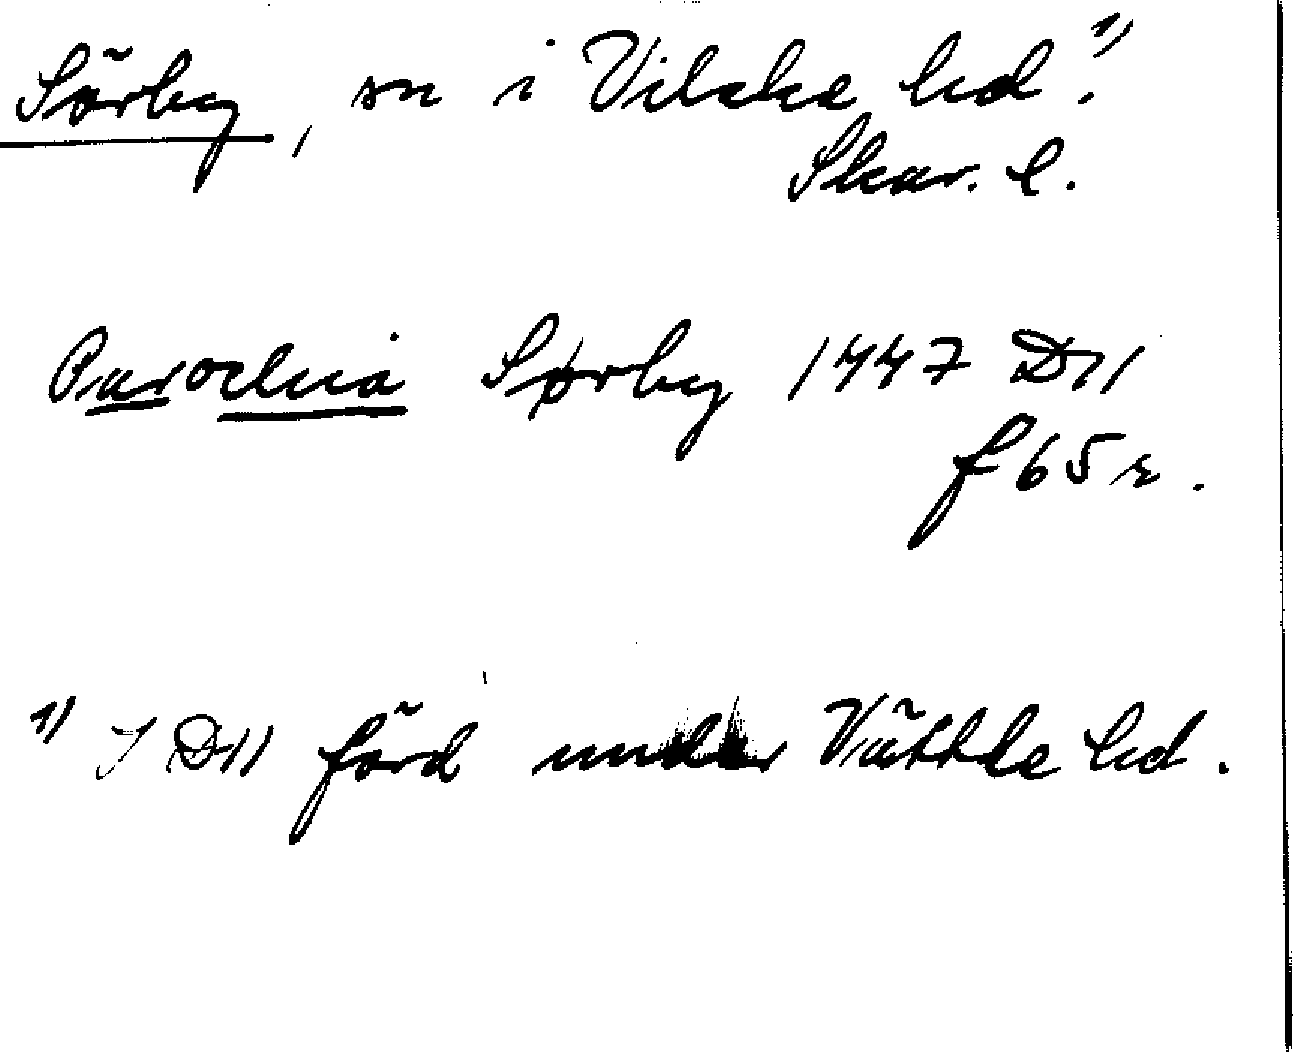 Sörby, sn i Vilske hd. 1)
Skar. l.
Parochia Sørby 1447 D11
f 65 r.
1) I D11 förd under Vättle hd.